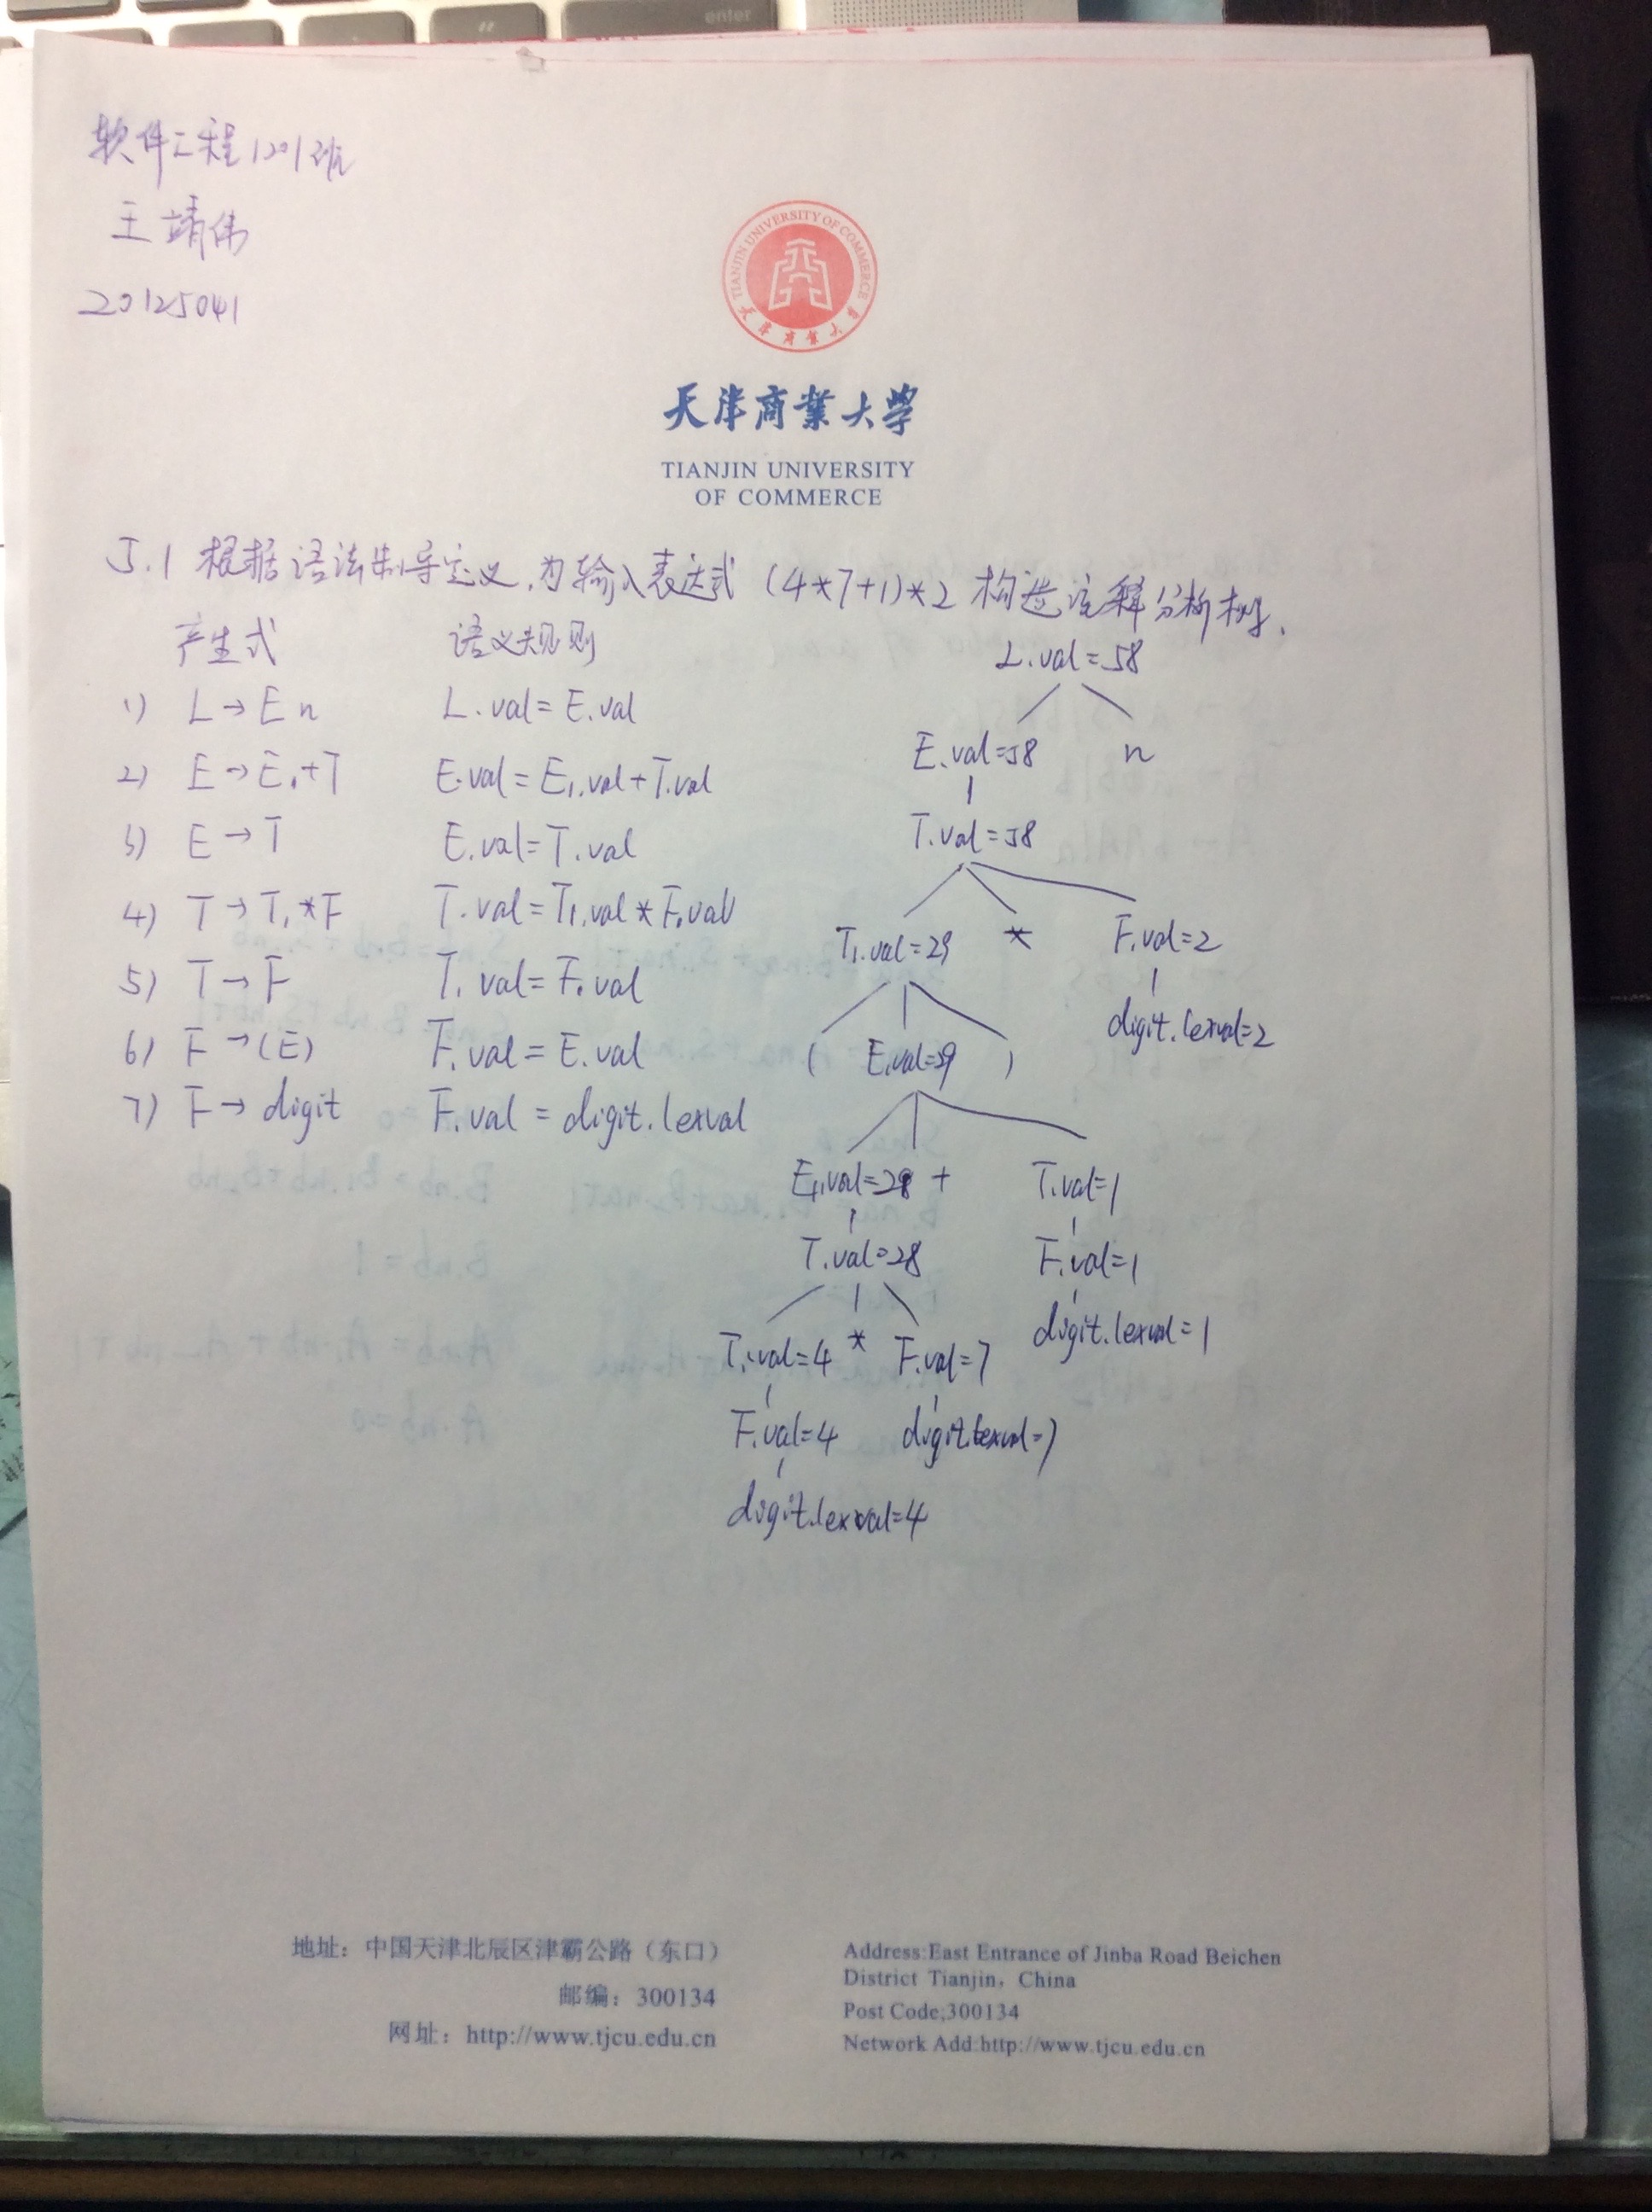 enter
软件工程1201班
王靖伟
20125041
TIANJIN UNIVERSITY OF COMMERCE
天津商业大学
天津商業大学
TIANJIN UNIVERSITY
OF COMMERCE
5.1 根据语法制导定义,为输入表达式 (4*7+1)*2 构造注释分析树.
产生式 语义规则
1) L→En L.val=E.val
2) E→E₁+T E.val=E₁.val+T.val
3) E→T E.val=T.val
4) T→T₁*F T.val=T₁.val*F.val
5) T→F T.val=F.val
6) F→(E) F.val=E.val
7) F→digit F.val=digit.lexval
L.val=58
E.val=58 n
T.val=58
T₁.val=29 * F.val=2
digit.lexval=2
( E.val=29 )
E₁.val=28 + T.val=1
T.val=28 F.val=1
digit.lexval=1
T₁.val=4 * F.val=7
F.val=4 digit.lexval=7
digit.lexval=4
地址：中国天津北辰区津霸公路（东口）
邮编：300134
网址：http://www.tjcu.edu.cn
Address:East Entrance of Jinba Road Beichen
District Tianjin, China
Post Code:300134
Network Add:http://www.tjcu.edu.cn